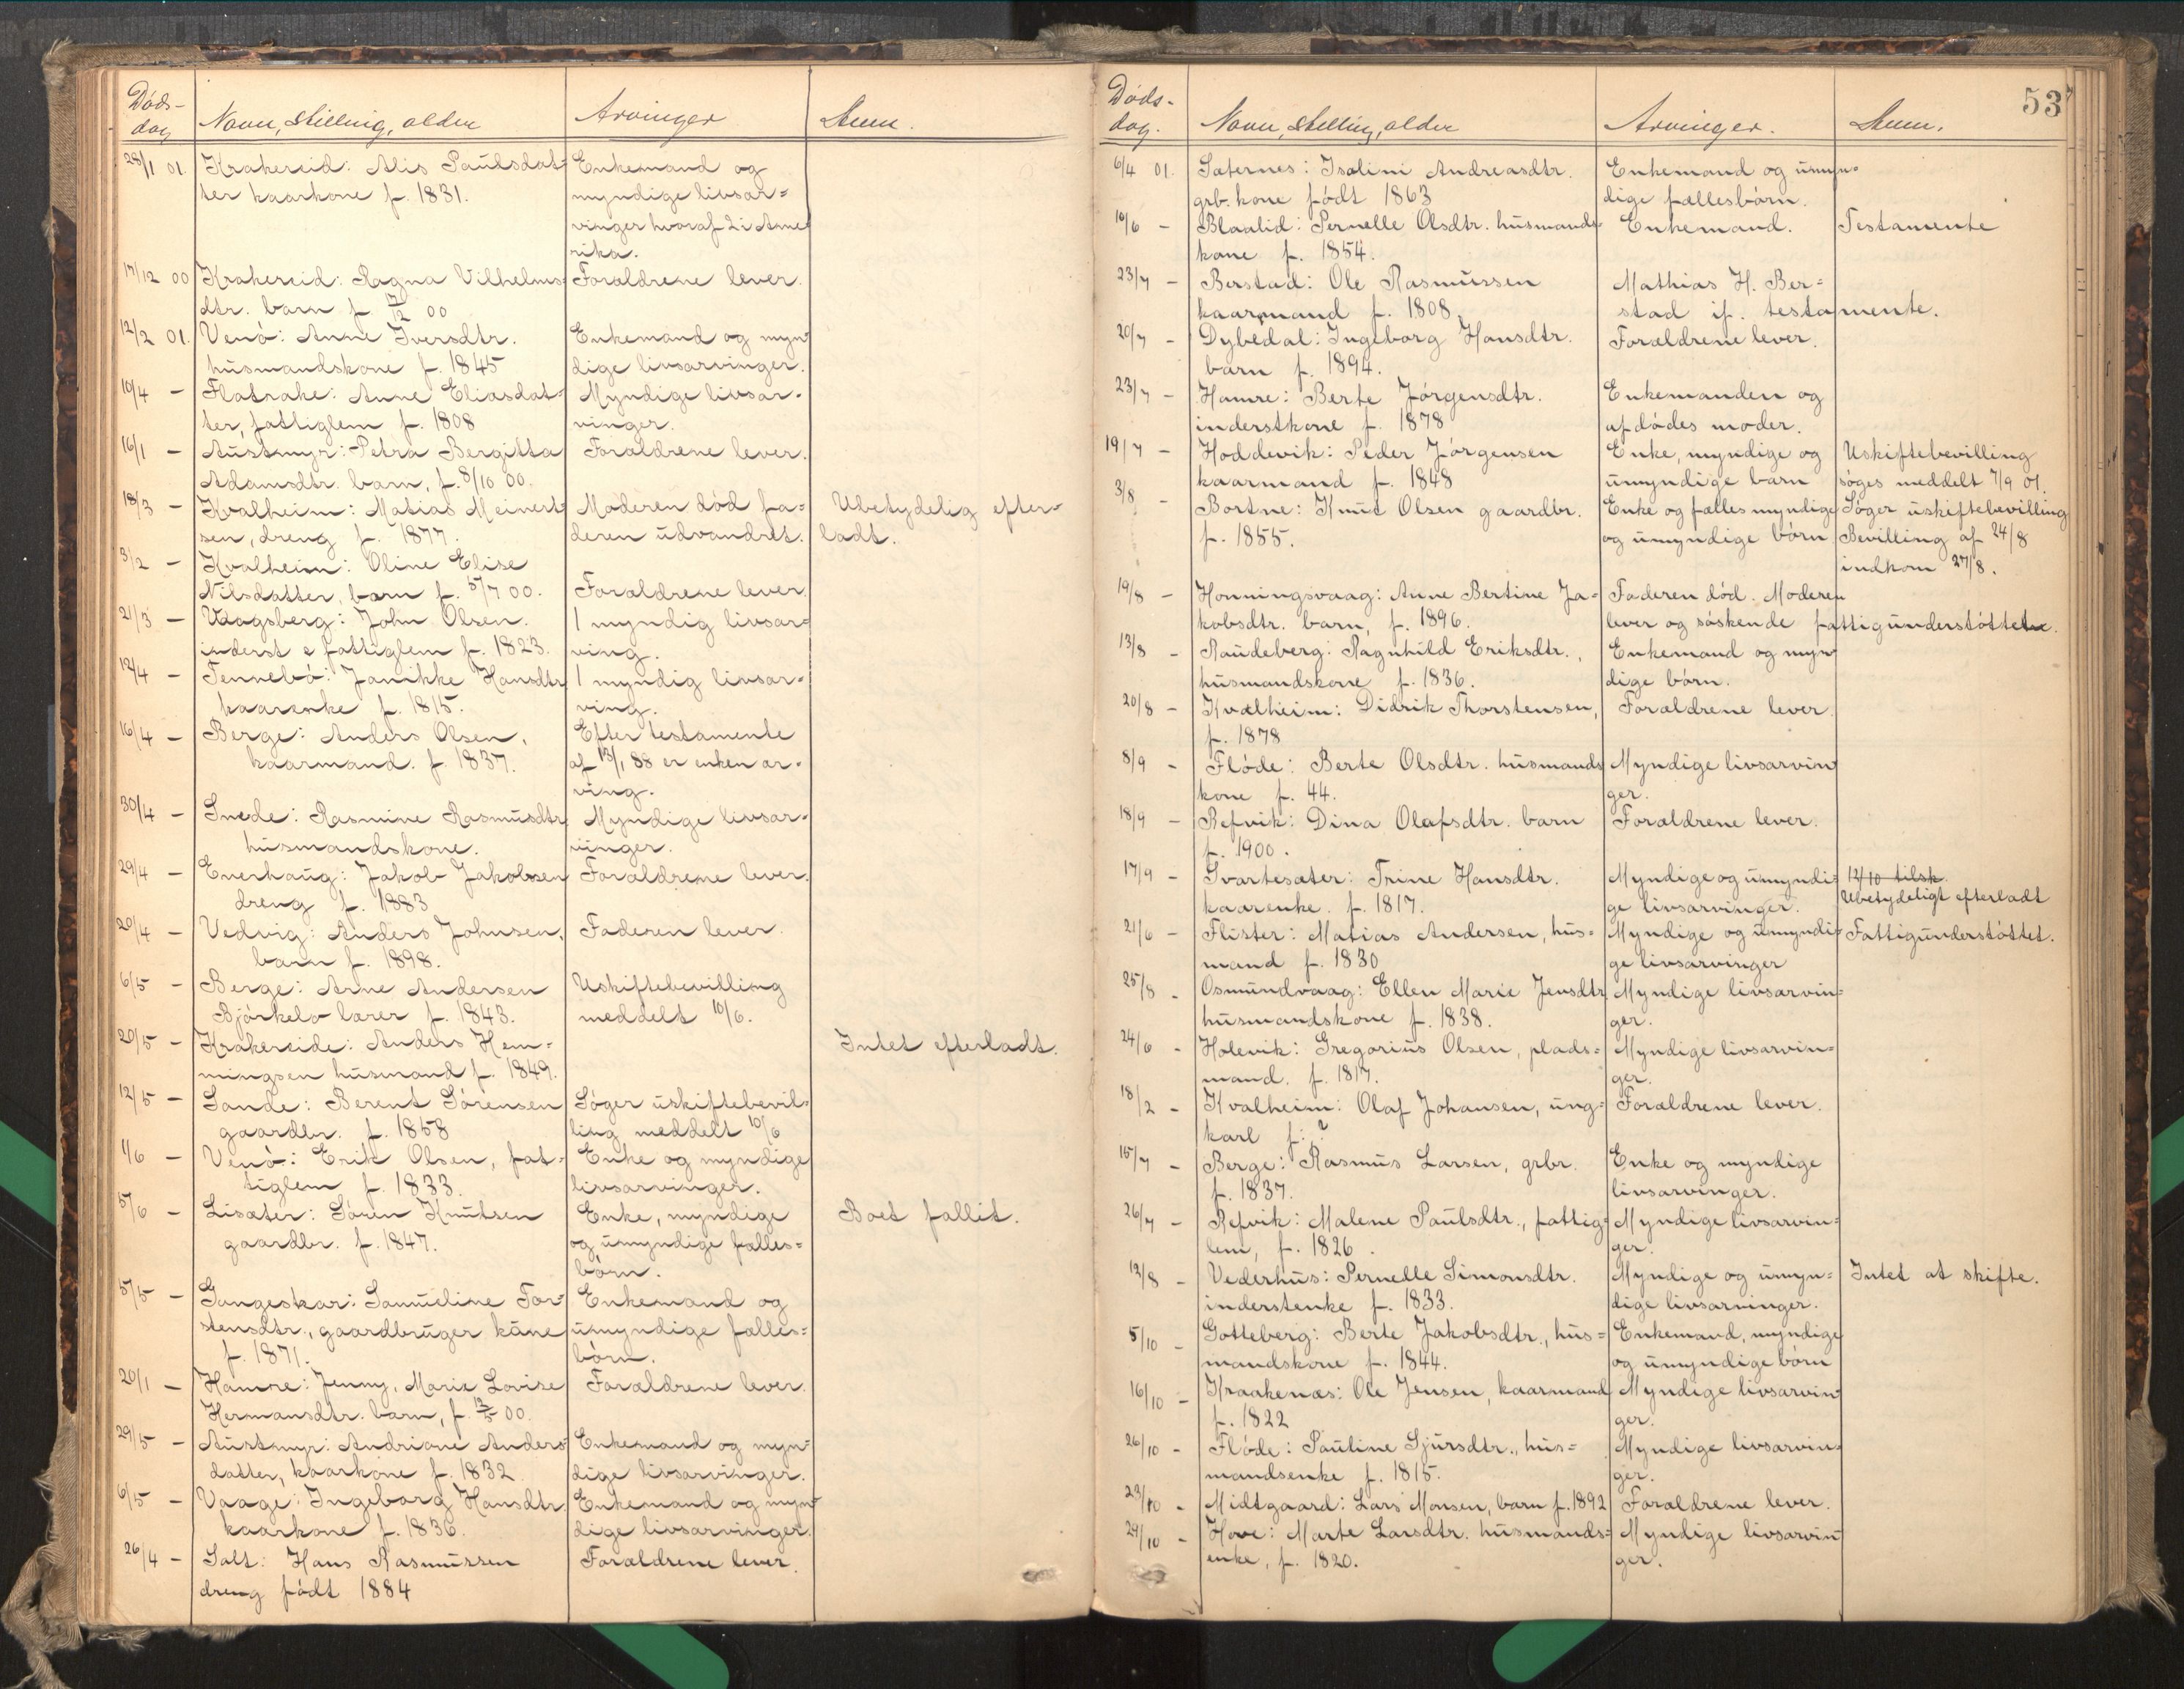 Døds-
dag
Navn, stilling, alder
Arvinger
Anm.
28/1 01. Krakereid: Alis Paulsdat= Enkemand og
ter kaarkone f. 1831. myndige livsar=
vinger hvoraf 2 i Ame
rika.
17/12 00 Krakereid: Ragna Vilhelms= Forældrene lever.
dtr. barn f. 17/12 00
12/2 01. Venø: Anne Iversdtr. Enkemand og myn=
husmandskone f. 1845 dige livsarvinger.
10/4 — Flatrake: Anne Eliasdat= Myndige livsar-
ter, fattiglem f. 1808 vinger.
16/1 — Austmyr: Petra Bergitta Forældrene lever.
Adamsdtr. barn, f. 8/10 00.
18/3 — Kvalheim: Matias Meinert Moderen död fa= Ubetydelig efter-
sen, dreng f. 1877. deren udvandret. ladt.
3/2 — Kvalheim: Oline Elise
Nilsdatter, barn f. 5/7 00. Forældrene lever.
21/3 — Vaagsberg: John Olsen. 1 myndig livsar=
inderst & fattiglem f. 1823. ving.
12/4 — Tennebø: Janikke Hansdtr. 1 myndig livsar=
kaarenke f. 1815. ving.
16/4 — Berge: Anders Olsen, Efter testamente
kaarmand. f. 1837. af 13/1 88 er enken ar-
ving.
30/4 — Snede: Rasmine Rasmusdtr. Myndige livsar-
husmandskone. vinger.
29/4 — Enerhaug: Jakob Jakobsen Forældrene lever.
dreng f. 1883
20/4 — Vedvig: Anders Johnsen, Faderen lever.
barn f. 1898.
6/5 — Berge: Arne Andersen Uskiftebevilling
Bjørkelo lærer f. 1843. meddelt 10/6.
20/5 — Krakereide: Anders Hem= Intet efterladt.
mingsen husmand f. 1849.
12/5 — Sande: Berent Sørensen Søger uskiftebevil=
gaardbr. f. 1858 ling meddelt 10/6
1/6 — Venø: Erik Olsen, fat= Enke og myndige
tiglem f. 1833. livsarvinger.
5/6 — Lisæter: Søren Knutsen Enke, myndige Boet fallit.
gaardbr. f. 1847. og umyndige fælles=
børn.
5/5 — Gangeskar: Samueline Tor= Enkemand og
stensdtr., gaardbruger kåne umyndige fælles=
f. 1871. børn.
20/1 — Hamre: Jenny, Marie Lovise Forældrene lever.
Hermansdtr. barn, f. 12/5 00.
29/5 — Austmyr: Andriane Anders= Enkemand og myn=
datter, kaarkone f. 1832 dige livsarvinger.
6/5 — Vaage: Ingeborg Hansdtr. Enkemand og myn=
kaarkone f. 1836. dige livsarvinger.
26/4 — Salt: Hans Rasmussen Forældrene lever.
dreng født 1884
53
Døds-
dag.
Navn, stilling, alder
Arvinger.
Anm.
6/4 01. Sæternes: Isalini Andreasdtr. Enkemand og umyn=
grb. kone født 1863 dige fællesbørn.
10/6 — Blaalid: Pernelle Olsdtr. husmands= Enkemand. Testamente
kone f. 1854.
23/7 — Berstad: Ole Rasmussen Mathias H. Ber=
kaarmand f. 1808. stad if. testamente.
20/7 — Dybedal: Ingeborg Hansdtr. Forældrene lever.
barn f. 1894.
23/7 — Hamre: Berte Jørgensdtr. Enkemanden og
inderstkone f. 1878 afdødes moder.
19/7 — Hoddevik: Peder Jørgensen Enke, myndige og Uskiftebevilling
kaarmand f. 1848 umyndige barn søges meddelt 7/9 01.
3/8 — Bortne: Knut Olsen gaardbr. Enke og fælles myndige Søger uskiftebevilling
f. 1855. og umyndige børn Bevilling af 24/8
indkom 27/8.
19/8 — Honningsvaag: Anne Bertine Ja= Faderen död. Moderen
kobsdtr. barn, f. 1896. lever og søskende fattigunderstøttede.
13/8 — Raudeberg: Ragnhild Eriksdtr., Enkemand og myn=
husmandskone f. 1836. dige børn.
20/8 — Kvalheim: Didrik Thorstensen, Forældrene lever.
f. 1878
8/9 — Fløde: Berte Olsdtr. husmands Myndige livsarvin=
kone f. 44. ger.
18/9 — Refvik: Dina Olafsdtr. barn Forældrene lever.
f. 1900.
17/9 — Svartesæter: Trine Hansdtr. Myndige og umyndi= 12/10 tilsk.
kaarenke. f. 1817. ge livsarvinger. Ubetydeligt efterladt
21/6 — Flister: Matias Andersen, hus= Myndige og umyndi= Fattigunderstøttet.
mand f. 1830 ge livsarvinger
25/8 - Osmundvaag: Ellen Marie Jensdtr. Myndige livsarvin=
husmandskone f. 1838. ger.
24/6 - Holevik: Gregorius Olsen, plads= Myndige livsarvin=
mand. f. 1817. ger.
18/2 - Kvalheim: Olaf Johansen, ung= Forældrene lever.
karl f: ?
15/7 - Berge: Rasmus Larsen, grbr. Enke og myndige
f. 1837. livsarvinger.
26/7 - Refvik: Malene Paulsdtr., fattig= Myndige livsarvin=
lem, f. 1826. ger.
12/8 - Vederhus: Pernelle Simonsdtr. Myndige og umyn= Intet at skifte.
inderstenke f. 1833. dige livsarvinger.
5/10 - Gotteberg: Berte Jakobsdtr., hus= Enkemand, myndige
mandskone f. 1844. og umyndige børn
16/10 - Kraakenæs: Ole Jensen, kaarmand Myndige livsarvin=
f. 1822 ger.
26/10 - Fløde: Pauline Sjursdtr., hus= Myndige livsarvin=
mandsenke f. 1815. ger.
23/10 - Midtgaard: Lars Monsen, barn f. 1892 Forældrene lever.
24/10 - Hove: Marte Larsdtr. husmands= Myndige livsarvin=
enke, f. 1820. ger.